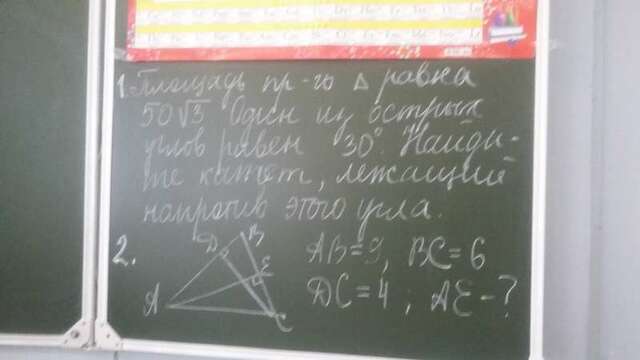 1. Площадь пр-го △ равна
50√3 Один из острых
углов равен 30°. Найди-
те катет, лежащий
напротив этого угла.
2.
B
D
E
A
C
AB=9, BC=6
DC=4; AE-?